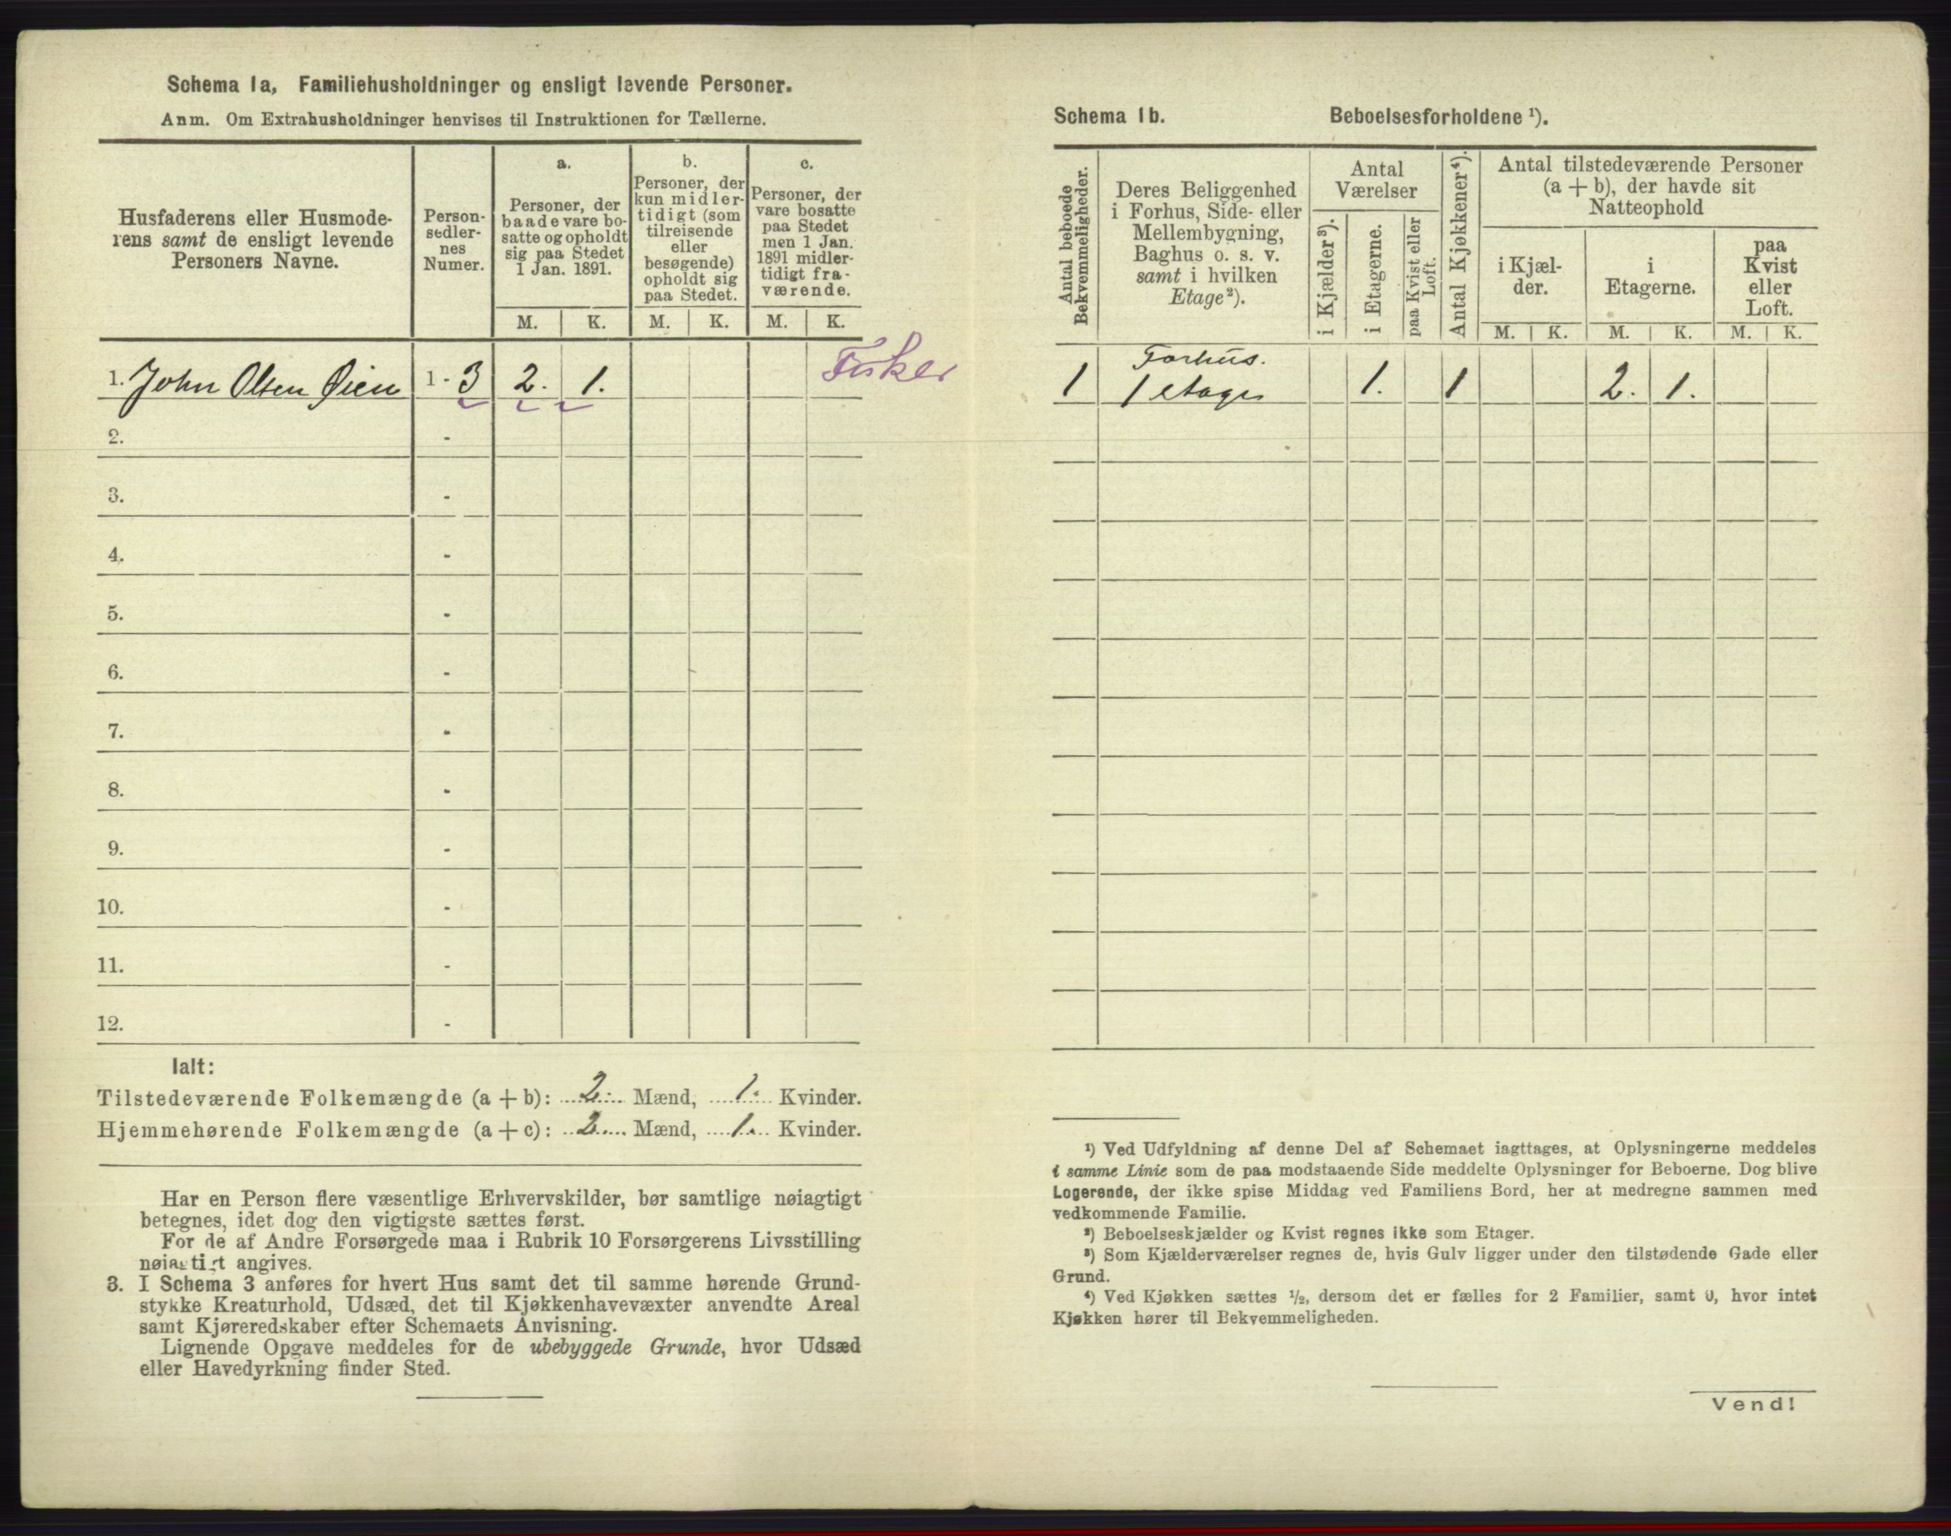 Schema 1a, Familiehusholdninger og ensligt levende Personer.
Anm. Om Extrahusholdninger henvises til Instruktionen for Tællerne.
Husfaderens eller Husmode-
rens samt de ensligt levende
Personers Navne.
Person-
sedler-
nes
Numer.
a.
Personer, der
baade vare bo-
satte og opholdt
sig paa Stedet
1 Jan. 1891.
M. K.
b.
Personer, der
kun midler-
tidigt (som
tilreisende
eller
besøgende)
opholdt sig
paa Stedet.
M. K.
c.
Personer, der
vare bosatte
paa Stedet
men 1 Jan.
1891 midler-
tidigt fra-
værende.
M. K.
1. John Olsen Øien 1 - 3 2. 1. Fisker
2. -
3. -
4. -
5. -
6. -
7. -
8. -
9. -
10. -
11. -
12. -
Ialt:
Tilstedeværende Folkemængde (a + b): 2. Mænd, 1. Kvinder.
Hjemmehørende Folkemængde (a + c): 2 Mænd, 1. Kvinder.
Har en Person flere væsentlige Erhvervskilder, bør samtlige nøiagtigt
betegnes, idet dog den vigtigste sættes først.
For de af Andre Forsørgede maa i Rubrik 10 Forsørgerens Livsstilling
nøiagtigt angives.
3. I Schema 3 anføres for hvert Hus samt det til samme hørende Grund-
stykke Kreaturhold, Udsæd, det til Kjøkkenhavevæxter anvendte Areal
samt Kjøreredskaber efter Schemaets Anvisning.
Lignende Opgave meddeles for de ubebyggede Grunde, hvor Udsæd
eller Havedyrkning finder Sted.
Schema 1b. Beboelsesforholdene ¹).
Antal beboede
Bekvemmeligheder.
Deres Beliggenhed
i Forhus, Side- eller
Mellembygning,
Baghus o. s. v.
samt i hvilken
Etage ²).
Antal
Værelser
i Kjælder ³).
i Etagerne.
paa Kvist eller
Loft.
Antal Kjøkkener ⁴).
Antal tilstedeværende Personer
(a + b), der havde sit
Natteophold
i Kjæl-
der.
i
Etagerne.
paa
Kvist
eller
Loft.
M. K. M. K. M. K.
Forhus.
1 1 etage 1. 1 2. 1.
¹) Ved Udfyldning af denne Del af Schemaet iagttages, at Oplysningerne meddeles
i samme Linie som de paa modstaaende Side meddelte Oplysninger for Beboerne. Dog blive
Logerende, der ikke spise Middag ved Familiens Bord, her at medregne sammen med
vedkommende Familie.
²) Beboelseskjælder og Kvist regnes ikke som Etager.
³) Som Kjælderværelser regnes de, hvis Gulv ligger under den tilstødende Gade eller
Grund.
⁴) Ved Kjøkken sættes ½, dersom det er fælles for 2 Familier, samt 0, hvor intet
Kjøkken hører til Bekvemmeligheden.
Vend!